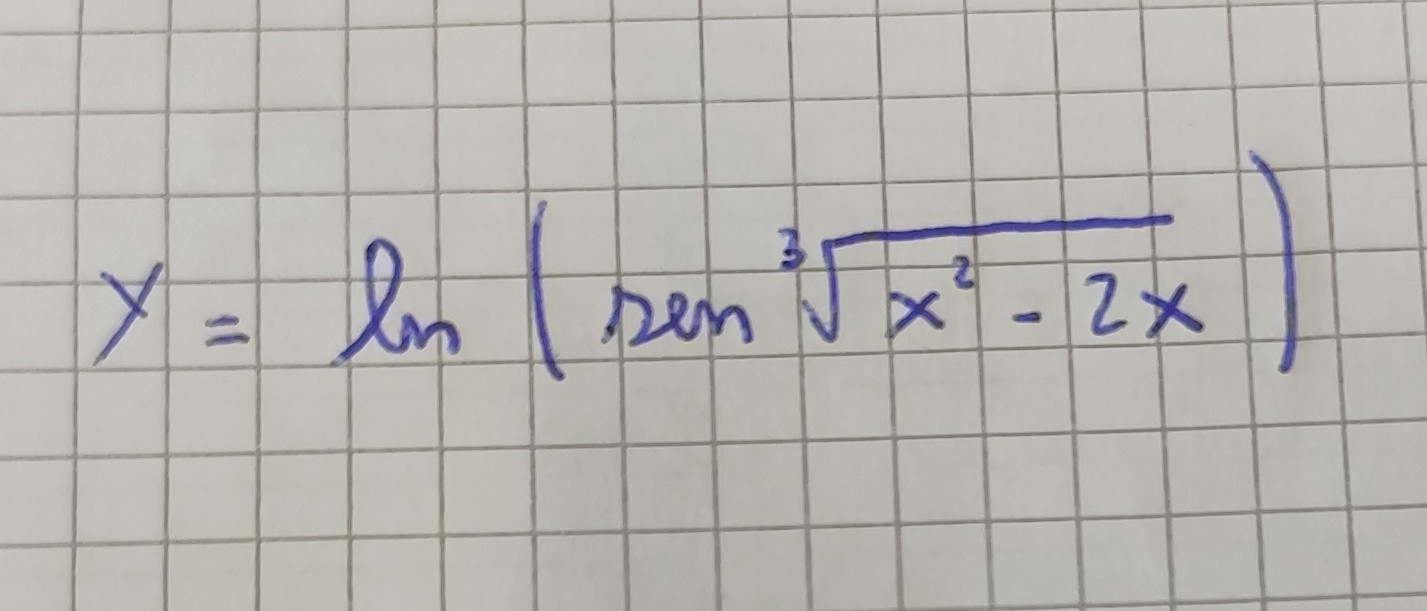 y = ln ( sen ∛(x² - 2x) )